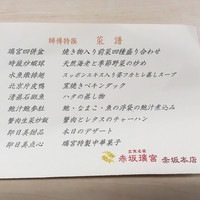 師傅特撰 菜譜
璃宮四併盆 焼き物入り前菜四種盛り合わせ
時蔬炒蝦球 天然海老と季節野菜の炒め
水魚燉排翅 スッポンエキス入り姿フカヒレ蒸しスープ
北京片皮鴨 窯焼きペキンダック
清蒸石斑魚 ハタの蒸し物
鮑汁鮑参肚 鮑・なまこ・魚の浮袋の鮑汁煮込み
蟹肉生菜炒飯 蟹肉とレタスのチャーハン
即日美甜品 本日のデザート
即日美点心 璃宮特製中華菓子
赤坂璃宮 赤坂本店